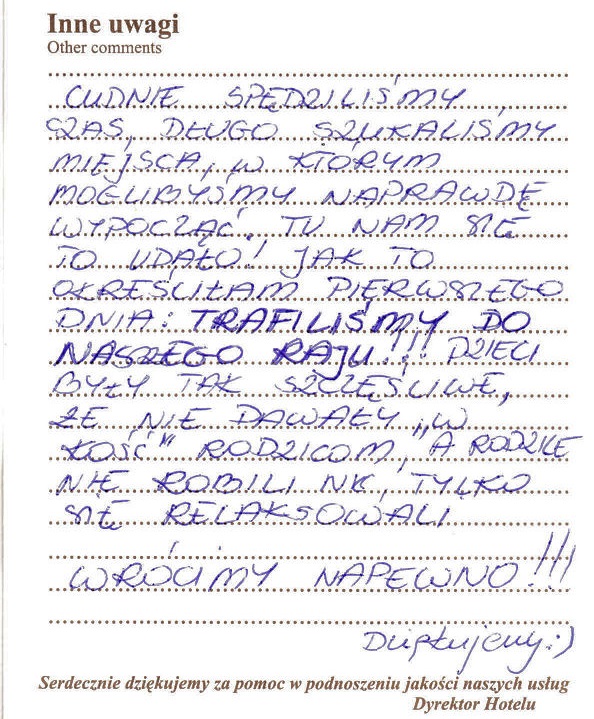 Inne uwagi
Other comments
CUDNIE SPĘDZILIŚMY
CZAS, DŁUGO SZUKALIŚMY
MIEJSCA, W KTÓRYM
MOGLIBYŚMY NAPRAWDĘ
WYPOCZĄĆ. TU NAM SIĘ
TO UDAŁO! JAK TO
OKREŚLIŁAM PIERWSZEGO
DNIA: TRAFILIŚMY DO
NASZEGO RAJU!!! DZIECI
BYŁY TAK SZCZĘŚLIWE,
ŻE NIE DAWAŁY „W
KOŚĆ” RODZICOM, A RODZICE
NIE ROBILI NIC, TYLKO
SIĘ RELAKSOWALI
WRÓCIMY NAPEWNO!!!
Dziękujemy :)
Serdecznie dziękujemy za pomoc w podnoszeniu jakości naszych usług
Dyrektor Hotelu